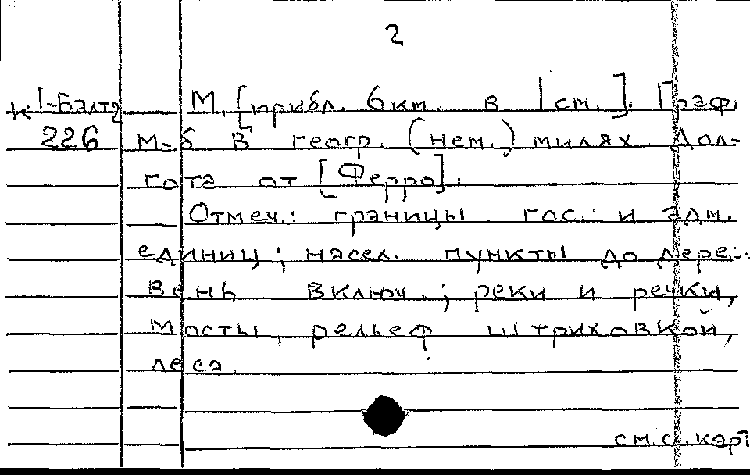 2
К1-Балт М. [прибл. 6км. в 1см.]. Граф.
226 м-б в геогр. (нем.) милях. Дол-
гота от [Ферро].
Отмеч.: границы гос. и адм.
единиц; насел. пункты до дере-
вень включ.; реки и речки,
мосты, рельеф штриховкой,
леса.
см. сл. карт